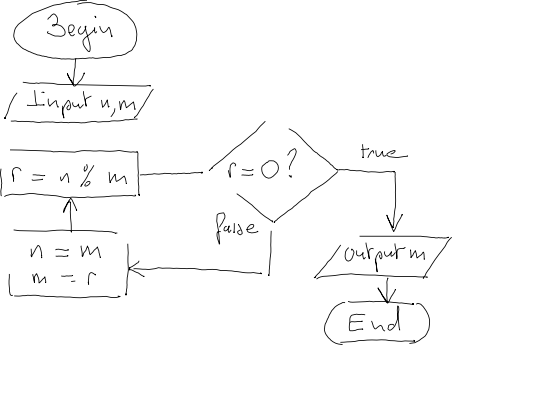 Begin
Input n,m
r = n % m
r=0?
true
false
n = m
m = r
output m
End